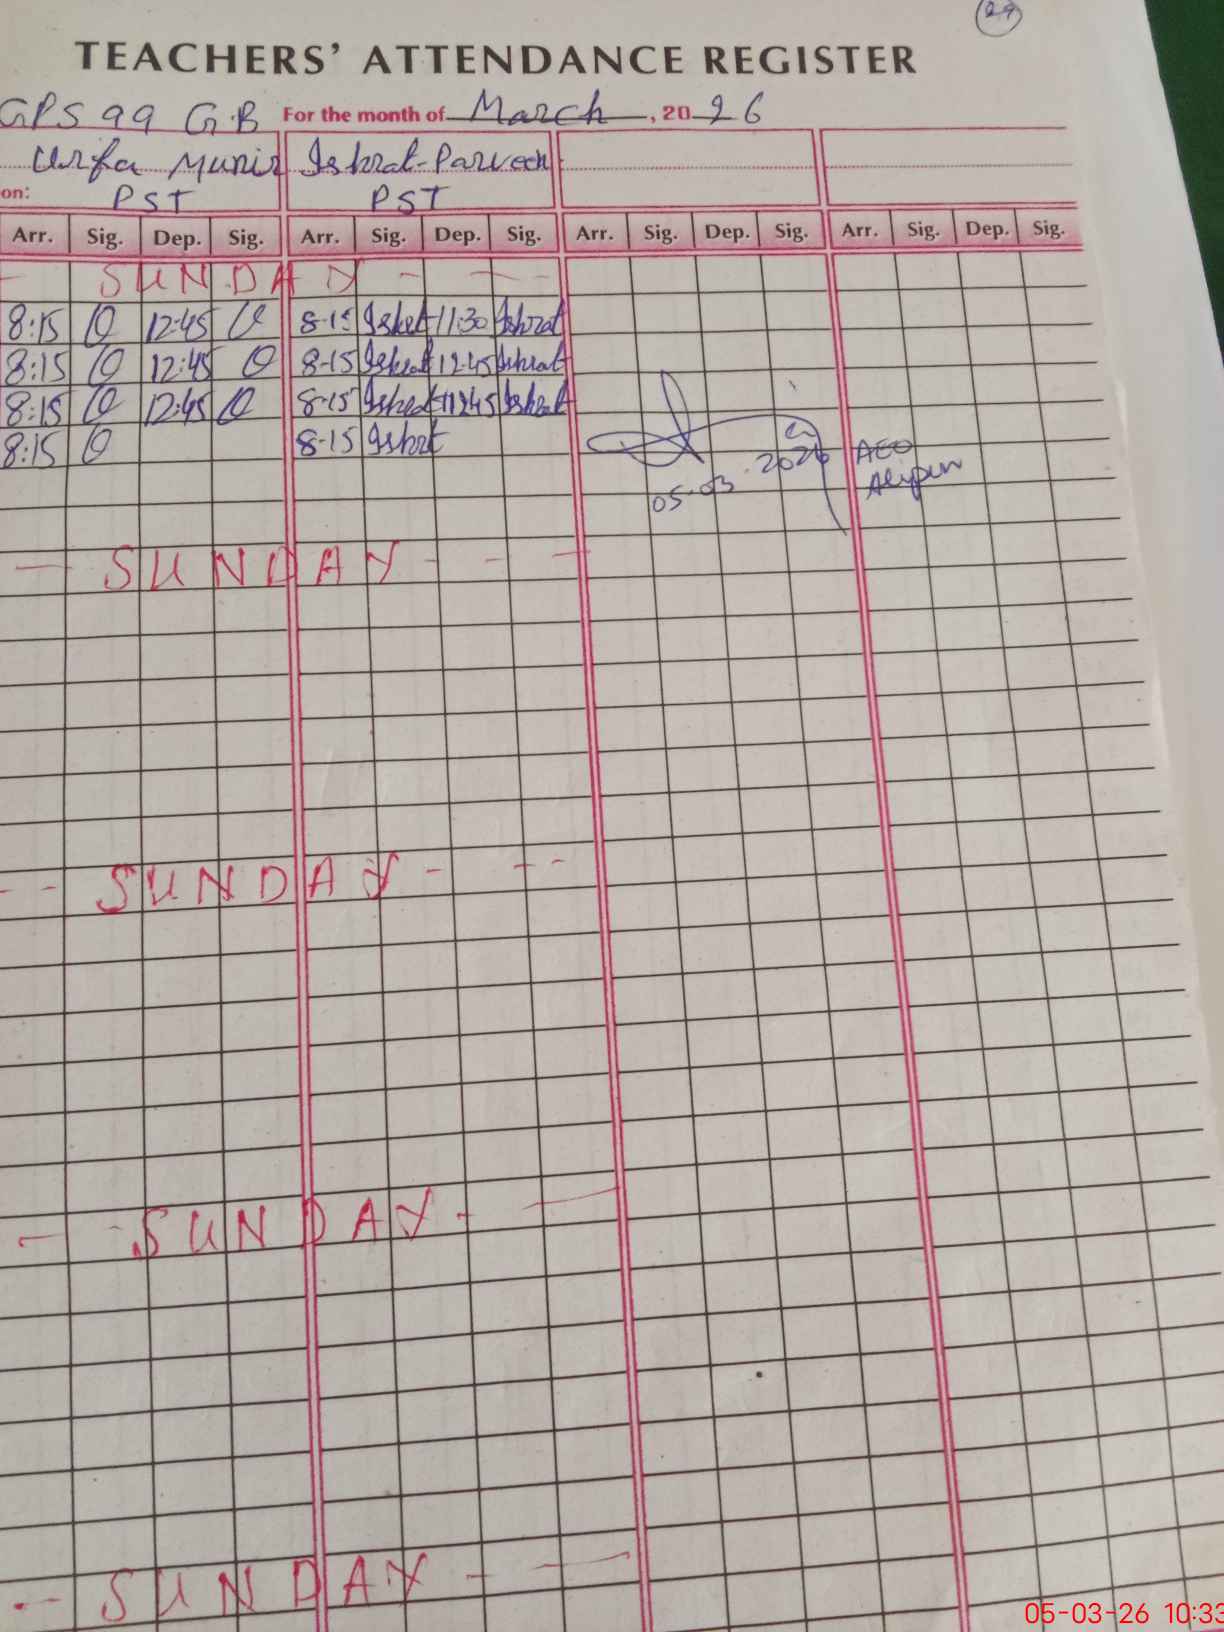 29
TEACHERS' ATTENDANCE REGISTER
GPS 99 G.B For the month of March, 2026
Urfa Munir Ishrat Parveen
on: PST PST
Arr. Sig. Dep. Sig. Arr. Sig. Dep. Sig. Arr. Sig. Dep. Sig. Arr. Sig. Dep. Sig.
SUNDAY
8:15 12:45 8-15 Ishrat 11:30 Ishrat
8:15 12:45 8-15 Ishrat 12:45 Ishrat
8:15 12:45 8-15 Ishrat Ishrat
8:15 8-15 Ishrat
05-03-2026 AEO
Alipur
SUNDAY
SUNDAY
SUNDAY
SUNDAY
05-03-26 10:33